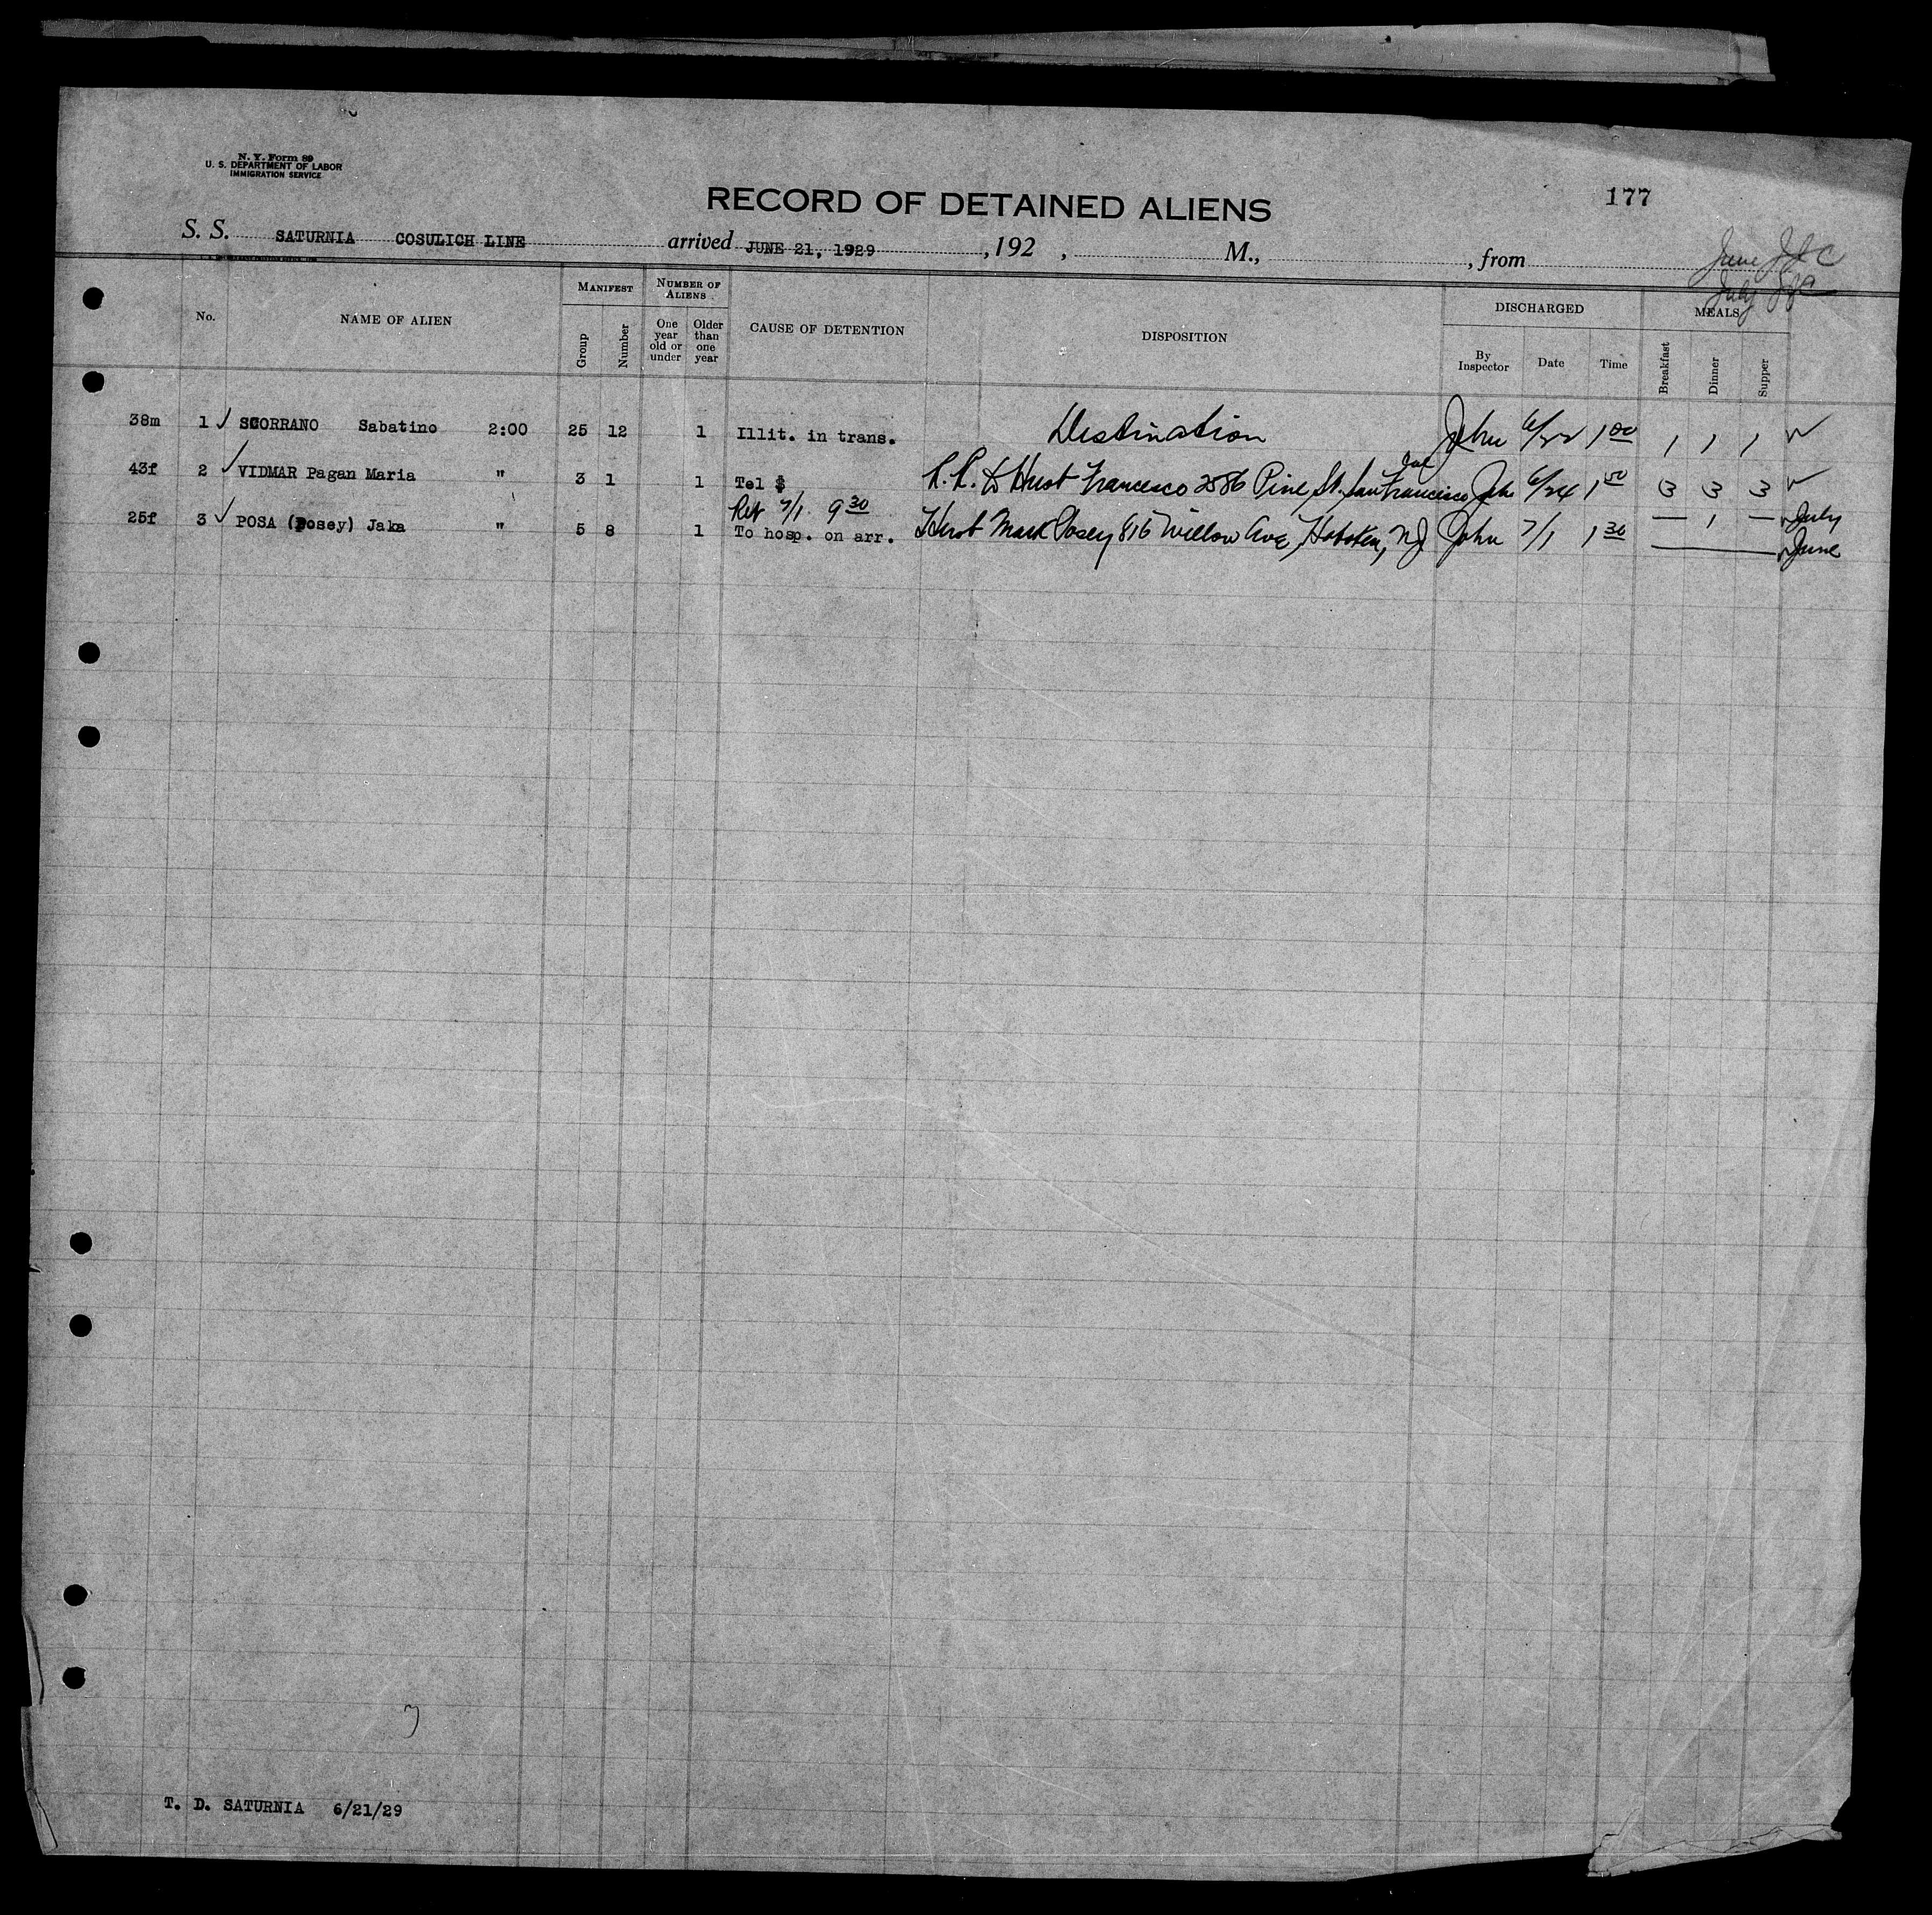 N. Y. Form 89
U. S. DEPARTMENT OF LABOR
IMMIGRATION SERVICE
177
RECORD OF DETAINED ALIENS
S. S. SATURNIA COSULICH LINE arrived JUNE 21, 1929, 192 , M., , from
June
July
No. NAME OF ALIEN MANIFEST Group Number NUMBER OF ALIENS One year old or under Older than one year CAUSE OF DETENTION DISPOSITION DISCHARGED By Inspector Date Time MEALS Breakfast Dinner Supper
38m 1 ✓ SCORRANO Sabatino 2:00 25 12 1 Illit. in trans. Destination John 6/22 1 00 1 1 1 ✓
43f 2 ✓ VIDMAR Pagan Maria " 3 1 1 Tel $ R.R. to Husb Francesco 2586 Pine St. San Francisco Cal John 6/24 1 50 3 3 3 ✓
7/1 9 30
25f 3 ✓ POSA (Posey) Jaka " 5 8 1 To hosp. on arr. Husb Mark Posey 816 Willow Ave, Hoboken, NJ John 7/1 1 30 — 1 — ✓ July
✓ June
T. D. SATURNIA 6/21/29